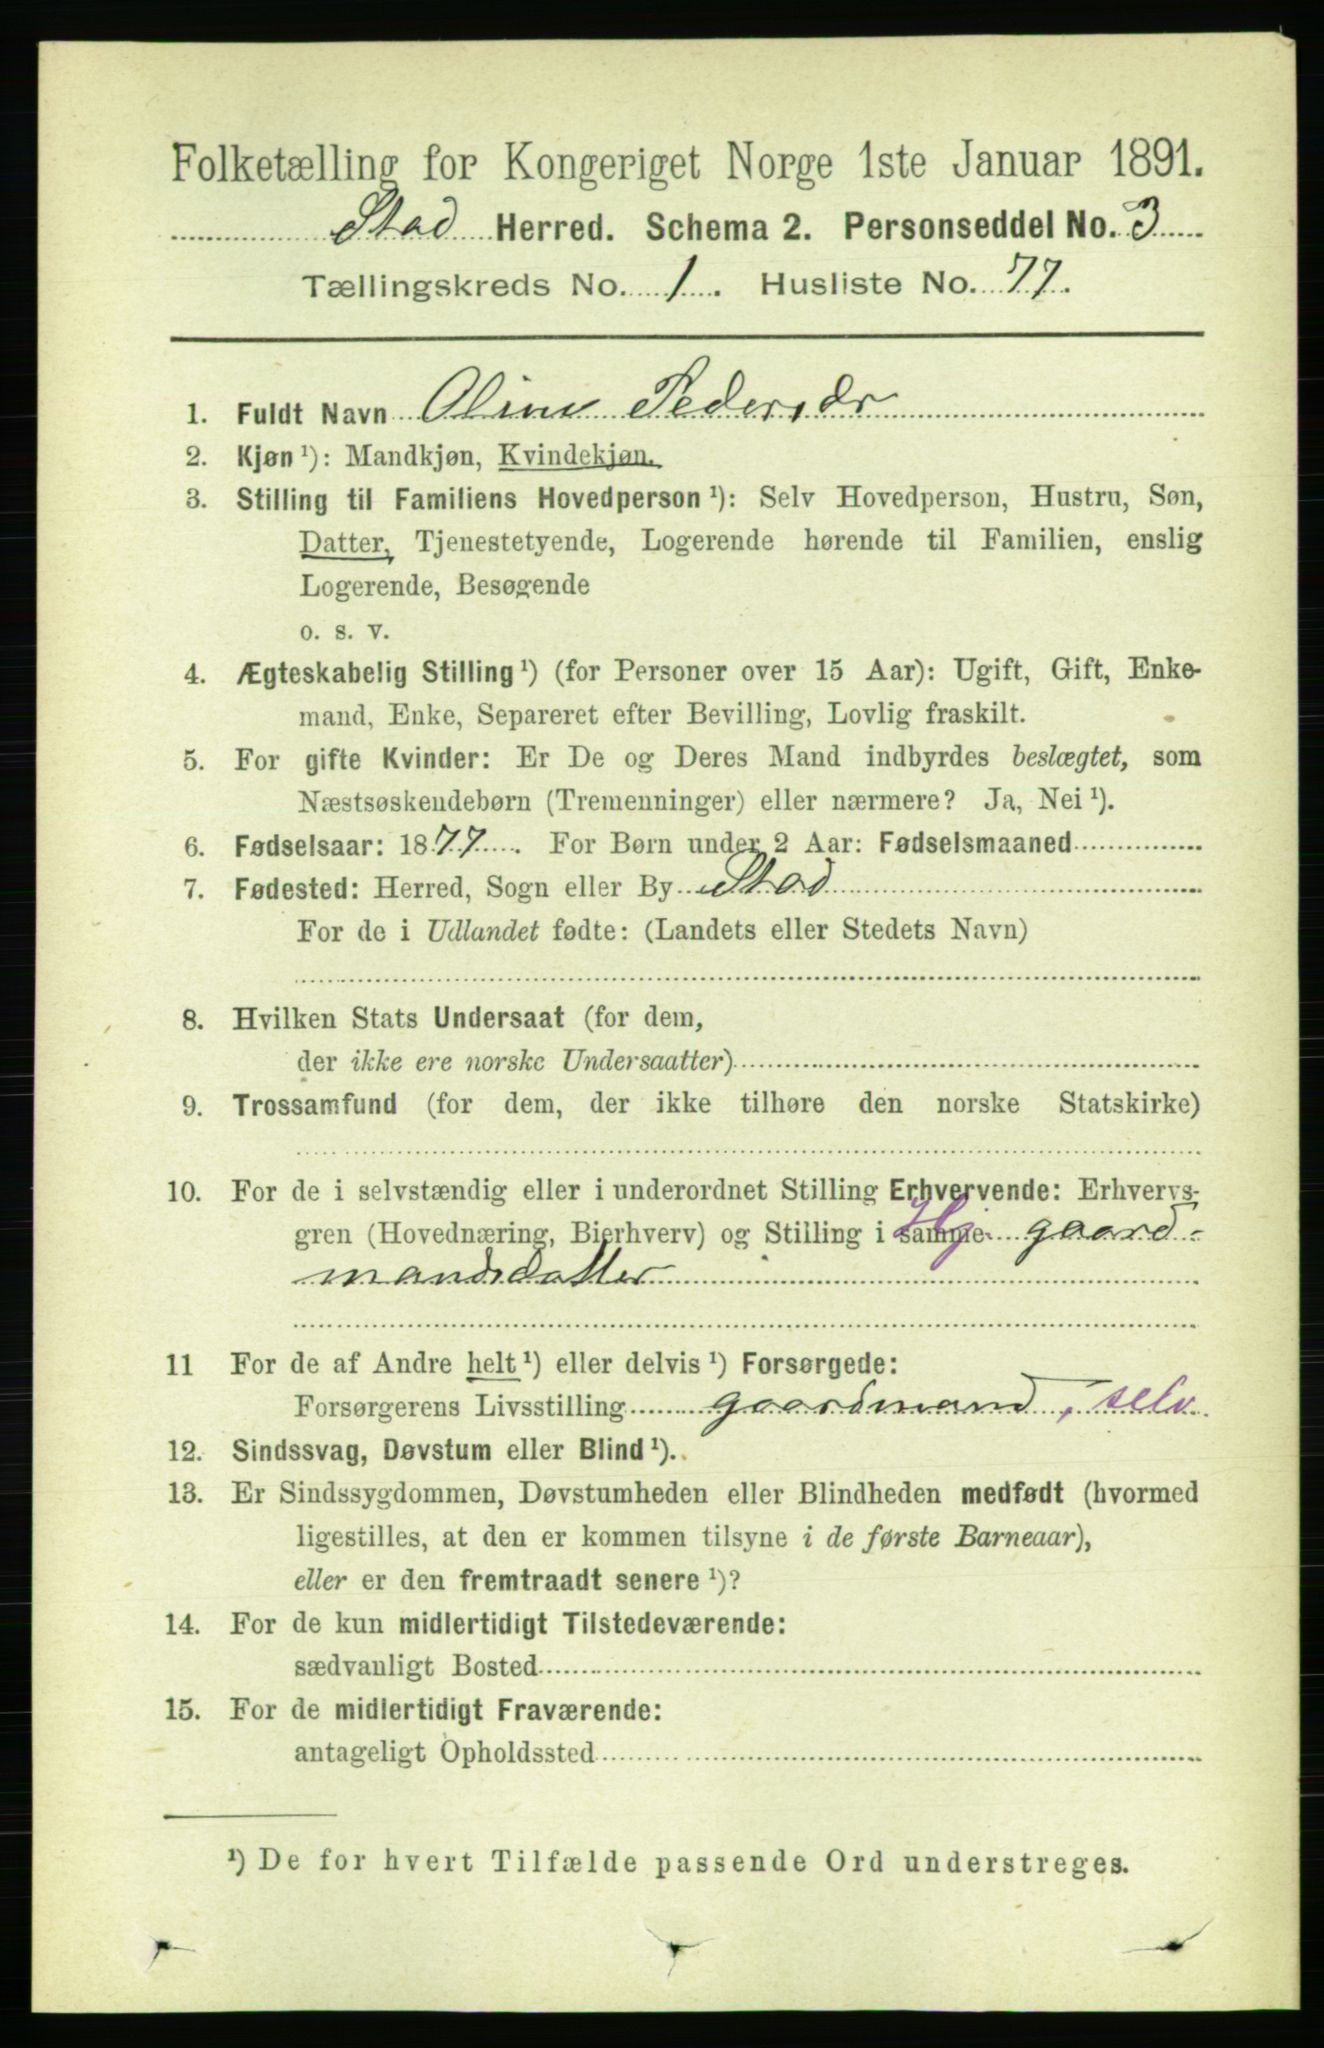 Folketælling for Kongeriget Norge 1ste Januar 1891.
Stod Herred. Schema 2. Personseddel No. 3
Tællingskreds No. 1. Husliste No. 77.
1. Fuldt Navn Oline Pedersdr
2. Kjøn ¹): Mandkjøn, Kvindekjøn.
3. Stilling til Familiens Hovedperson ¹): Selv Hovedperson, Hustru, Søn,
Datter, Tjenestetyende, Logerende hørende til Familien, enslig
Logerende, Besøgende
o. s. v.
4. Ægteskabelig Stilling ¹) (for Personer over 15 Aar): Ugift, Gift, Enke-
mand, Enke, Separeret efter Bevilling, Lovlig fraskilt.
5. For gifte Kvinder: Er De og Deres Mand indbyrdes beslægtet, som
Næstsøskendebørn (Tremenninger) eller nærmere? Ja, Nei ¹).
6. Fødselsaar: 1877. For Børn under 2 Aar: Fødselsmaaned
7. Fødested: Herred, Sogn eller By Stod
For de i Udlandet fødte: (Landets eller Stedets Navn)
8. Hvilken Stats Undersaat (for dem,
der ikke ere norske Undersaatter)
9. Trossamfund (for dem, der ikke tilhøre den norske Statskirke)
10. For de i selvstændig eller i underordnet Stilling Erhvervende: Erhvervs-
gren (Hovednæring, Bierhverv) og Stilling i samme Hj. gaard-
mandsdatter
11 For de af Andre helt ¹) eller delvis ¹) Forsørgede:
Forsørgerens Livsstilling gaardmand, selv
12. Sindssvag, Døvstum eller Blind ¹).
13. Er Sindssygdommen, Døvstumheden eller Blindheden medfødt (hvormed
ligestilles, at den er kommen tilsyne i de første Barneaar),
eller er den fremtraadt senere ¹)?
14. For de kun midlertidigt Tilstedeværende:
sædvanligt Bosted
15. For de midlertidigt Fraværende:
antageligt Opholdssted
¹) De for hvert Tilfælde passende Ord understreges.